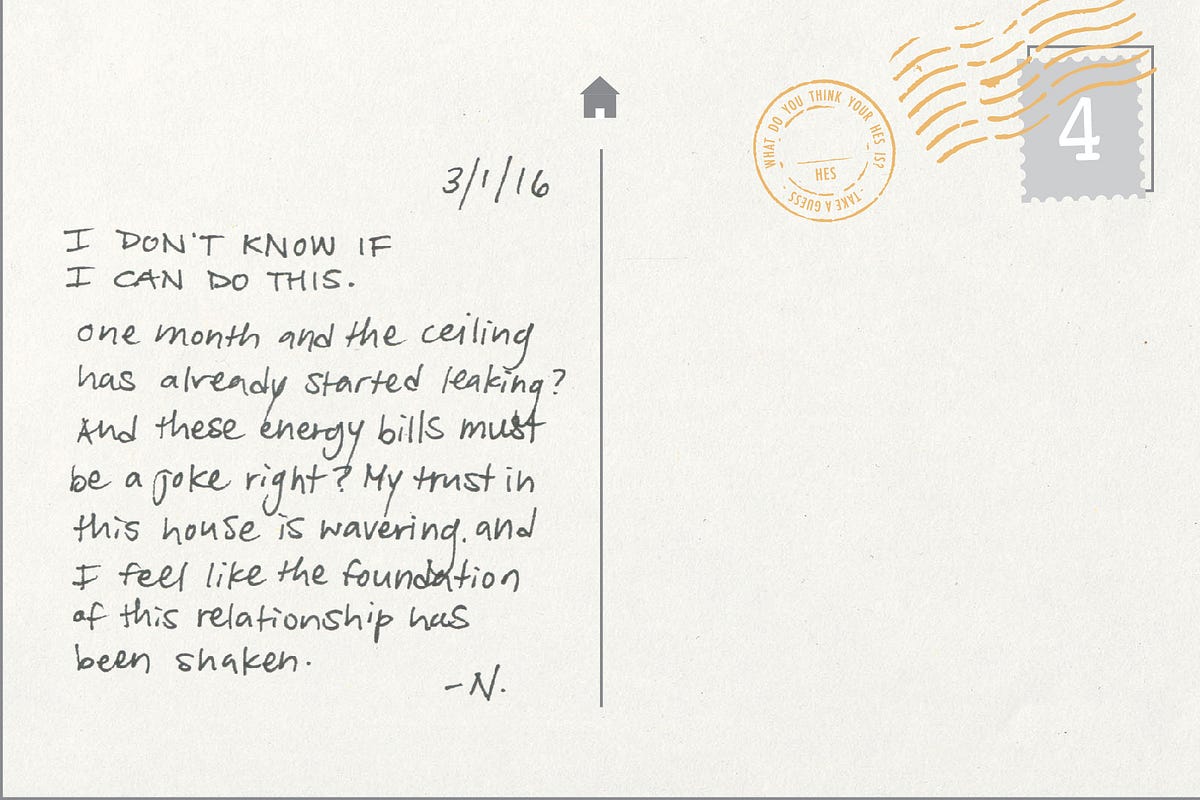 3/1/16
I DON'T KNOW IF
I CAN DO THIS.
one month and the ceiling
has already started leaking?
And these energy bills must
be a joke right? My trust in
this house is wavering. and
I feel like the foundation
of this relationship has
been shaken.
-N.
WHAT DO YOU THINK YOUR HES IS?
HES
- TAKE A GUESS -
4